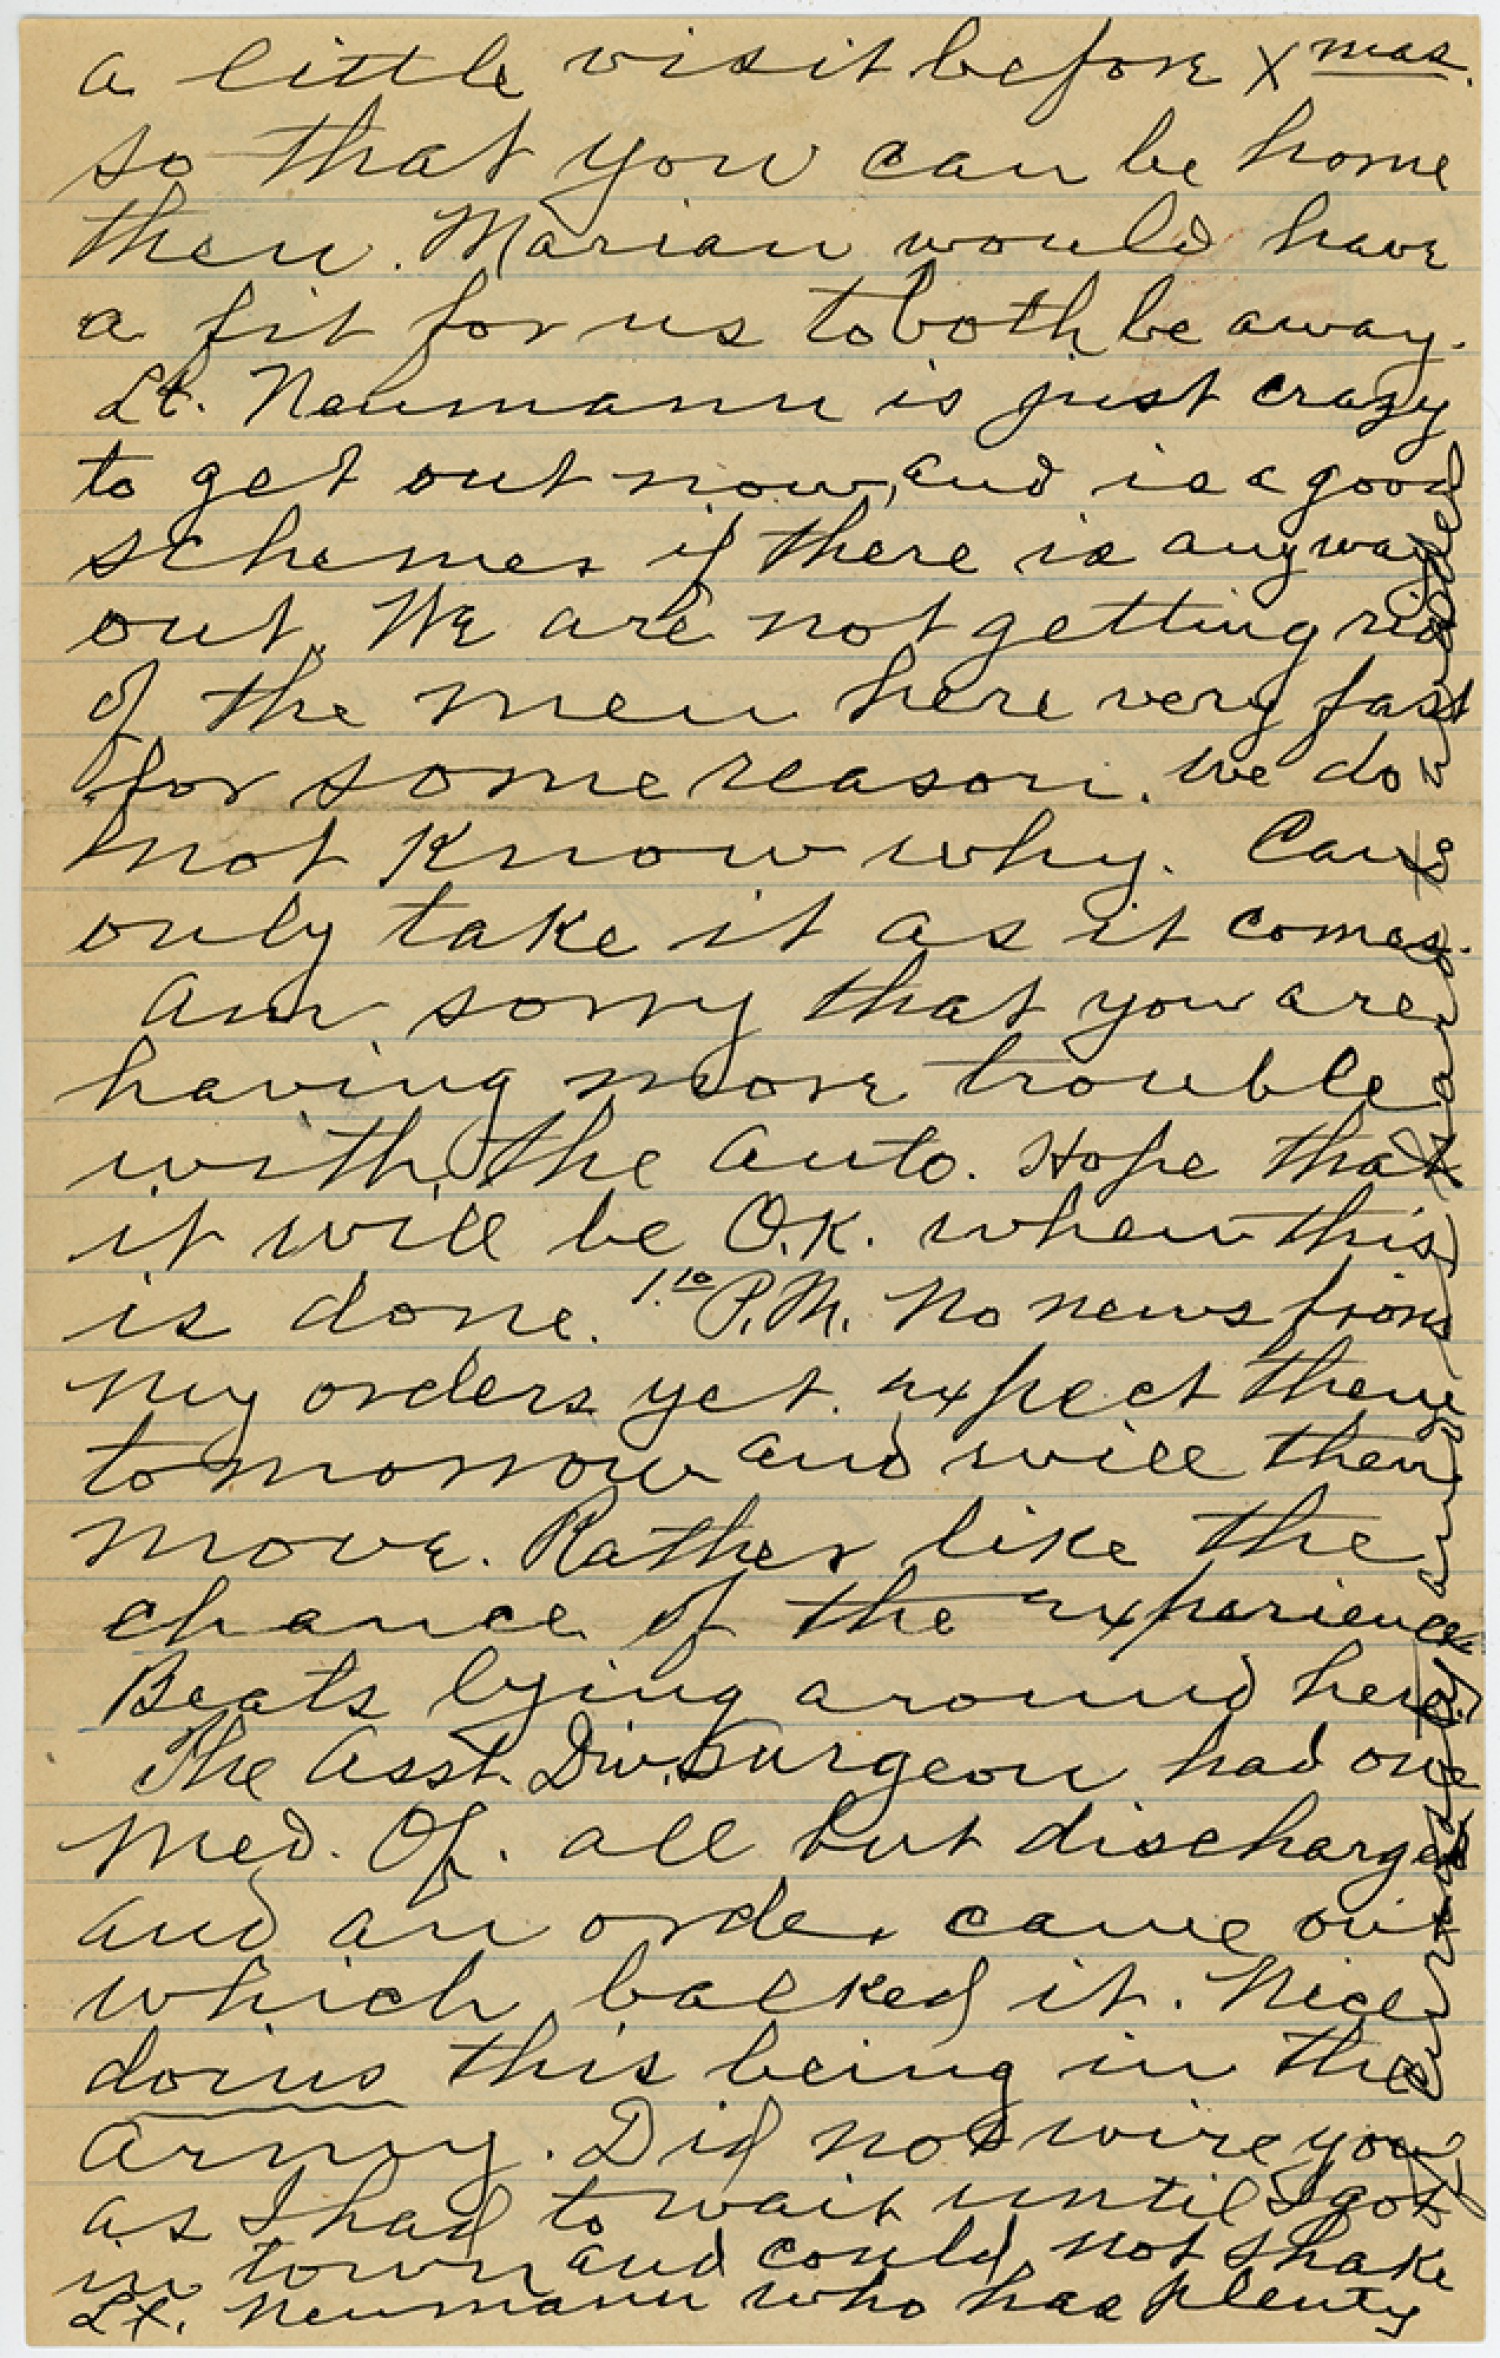 a little visit before Xmas.
so that you can be home
then. Marian would have
a fit for us to both be away.
Lt. Neumann is just crazy
to get out now, and is a good
schemer if there is any way
out. We are not getting rid
of the men here very fast
for some reason. We do
not know why. Can
only take it as it comes.
Am sorry that you are
having more trouble
with the auto. Hope that
it will be O.K. when this
is done. 1.10 P.M. No news from
my orders yet. expect them
tomorrow and will then
move. Rather like the
chance of the experience
Beats lying around here.
The Asst. Div. Surgeon had one
Med. Of. all but discharged
and an order came out
which balked it. Nice
doins this being in the
Army. Did not wire you
as I had to wait until I got
in town and could not shake
Lt. Neumann who has plenty
of curiosity and